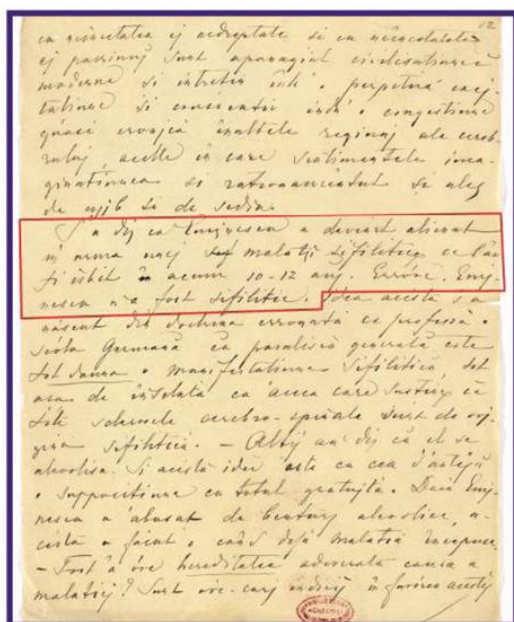 12
cu
ej passiunj sunt apanagiul civilisatiunei
moderne si intretin intr'o perpetuă
tatiune si consecutiv intr'o congestiune
quasi cronică inaltele regiunj ale cereb-
rului, acelle in care sentimentele ima-
ginatiunea si rationamentul si aleg
de si de sediu.
S'a dis ca Eminescu a devenit alienat
in urma unej malatij sifilitice ce l'ar
fi isbit in acum 10-12 anj. Erróre. Emi-
nescu n'a fost sifilitic. Idea acesta s'a
nascut din doctrina erronată ce professă o
scóla Germană ca paralisia generală este
tot dauna o manifestatiune sifilitică, tot
asa de ca aceea care sustine că
tóte sclerosele cerebro-spinale sunt de ori-
gina sifilitică. – Altij au dis că el se
alcolisa. Si acestă idee este ca cea d'antêiu
o suppositiune cu totul gratuită. Dacă Emi-
nescu a abusat de beuturj alcoolice, a-
cesta a facut-o când deja malatia incepuse.
– Fost'a óre hereditatea adeverata causa a
malatiej? Sunt óre-carj indicij in favórea acestej